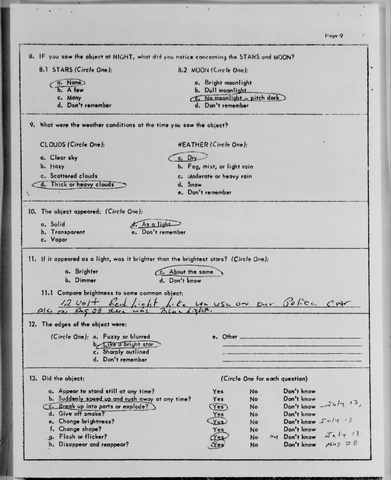 Page 2
8. IF you saw the object at NIGHT, what did you notice concerning the STARS and MOON?
8.1 STARS (Circle One): 8.2 MOON (Circle One):
a. None a. Bright moonlight
b. A few b. Dull moonlight
c. Many c. No moonlight – pitch dark
d. Don't remember d. Don't remember
9. What were the weather conditions at the time you saw the object?
CLOUDS (Circle One): WEATHER (Circle One):
a. Clear sky a. Dry
b. Hazy b. Fog, mist, or light rain
c. Scattered clouds c. Moderate or heavy rain
d. Thick or heavy clouds d. Snow
e. Don't remember
10. The object appeared: (Circle One):
a. Solid d. As a light
b. Transparent e. Don't remember
c. Vapor
11. If it appeared as a light, was it brighter than the brightest stars? (Circle One):
a. Brighter c. About the same
b. Dimmer d. Don't know
11.1 Compare brightness to some common object:
12 Volt Red Light Like we use on our Police Car
Also on Aug 28 there was Blue Light.
12. The edges of the object were:
(Circle One): a. Fuzzy or blurred e. Other
b. Like a bright star
c. Sharply outlined
d. Don't remember
13. Did the object: (Circle One for each question)
a. Appear to stand still at any time? Yes No Don't know
b. Suddenly speed up and rush away at any time? Yes No Don't know
c. Break up into parts or explode? Yes No Don't know July 13,
d. Give off smoke? Yes No Don't know
e. Change brightness? Yes No Don't know July 13
f. Change shape? Yes No Don't know
g. Flash or flicker? Yes No Don't know July 13
h. Disappear and reappear? Yes No Don't know Aug 28